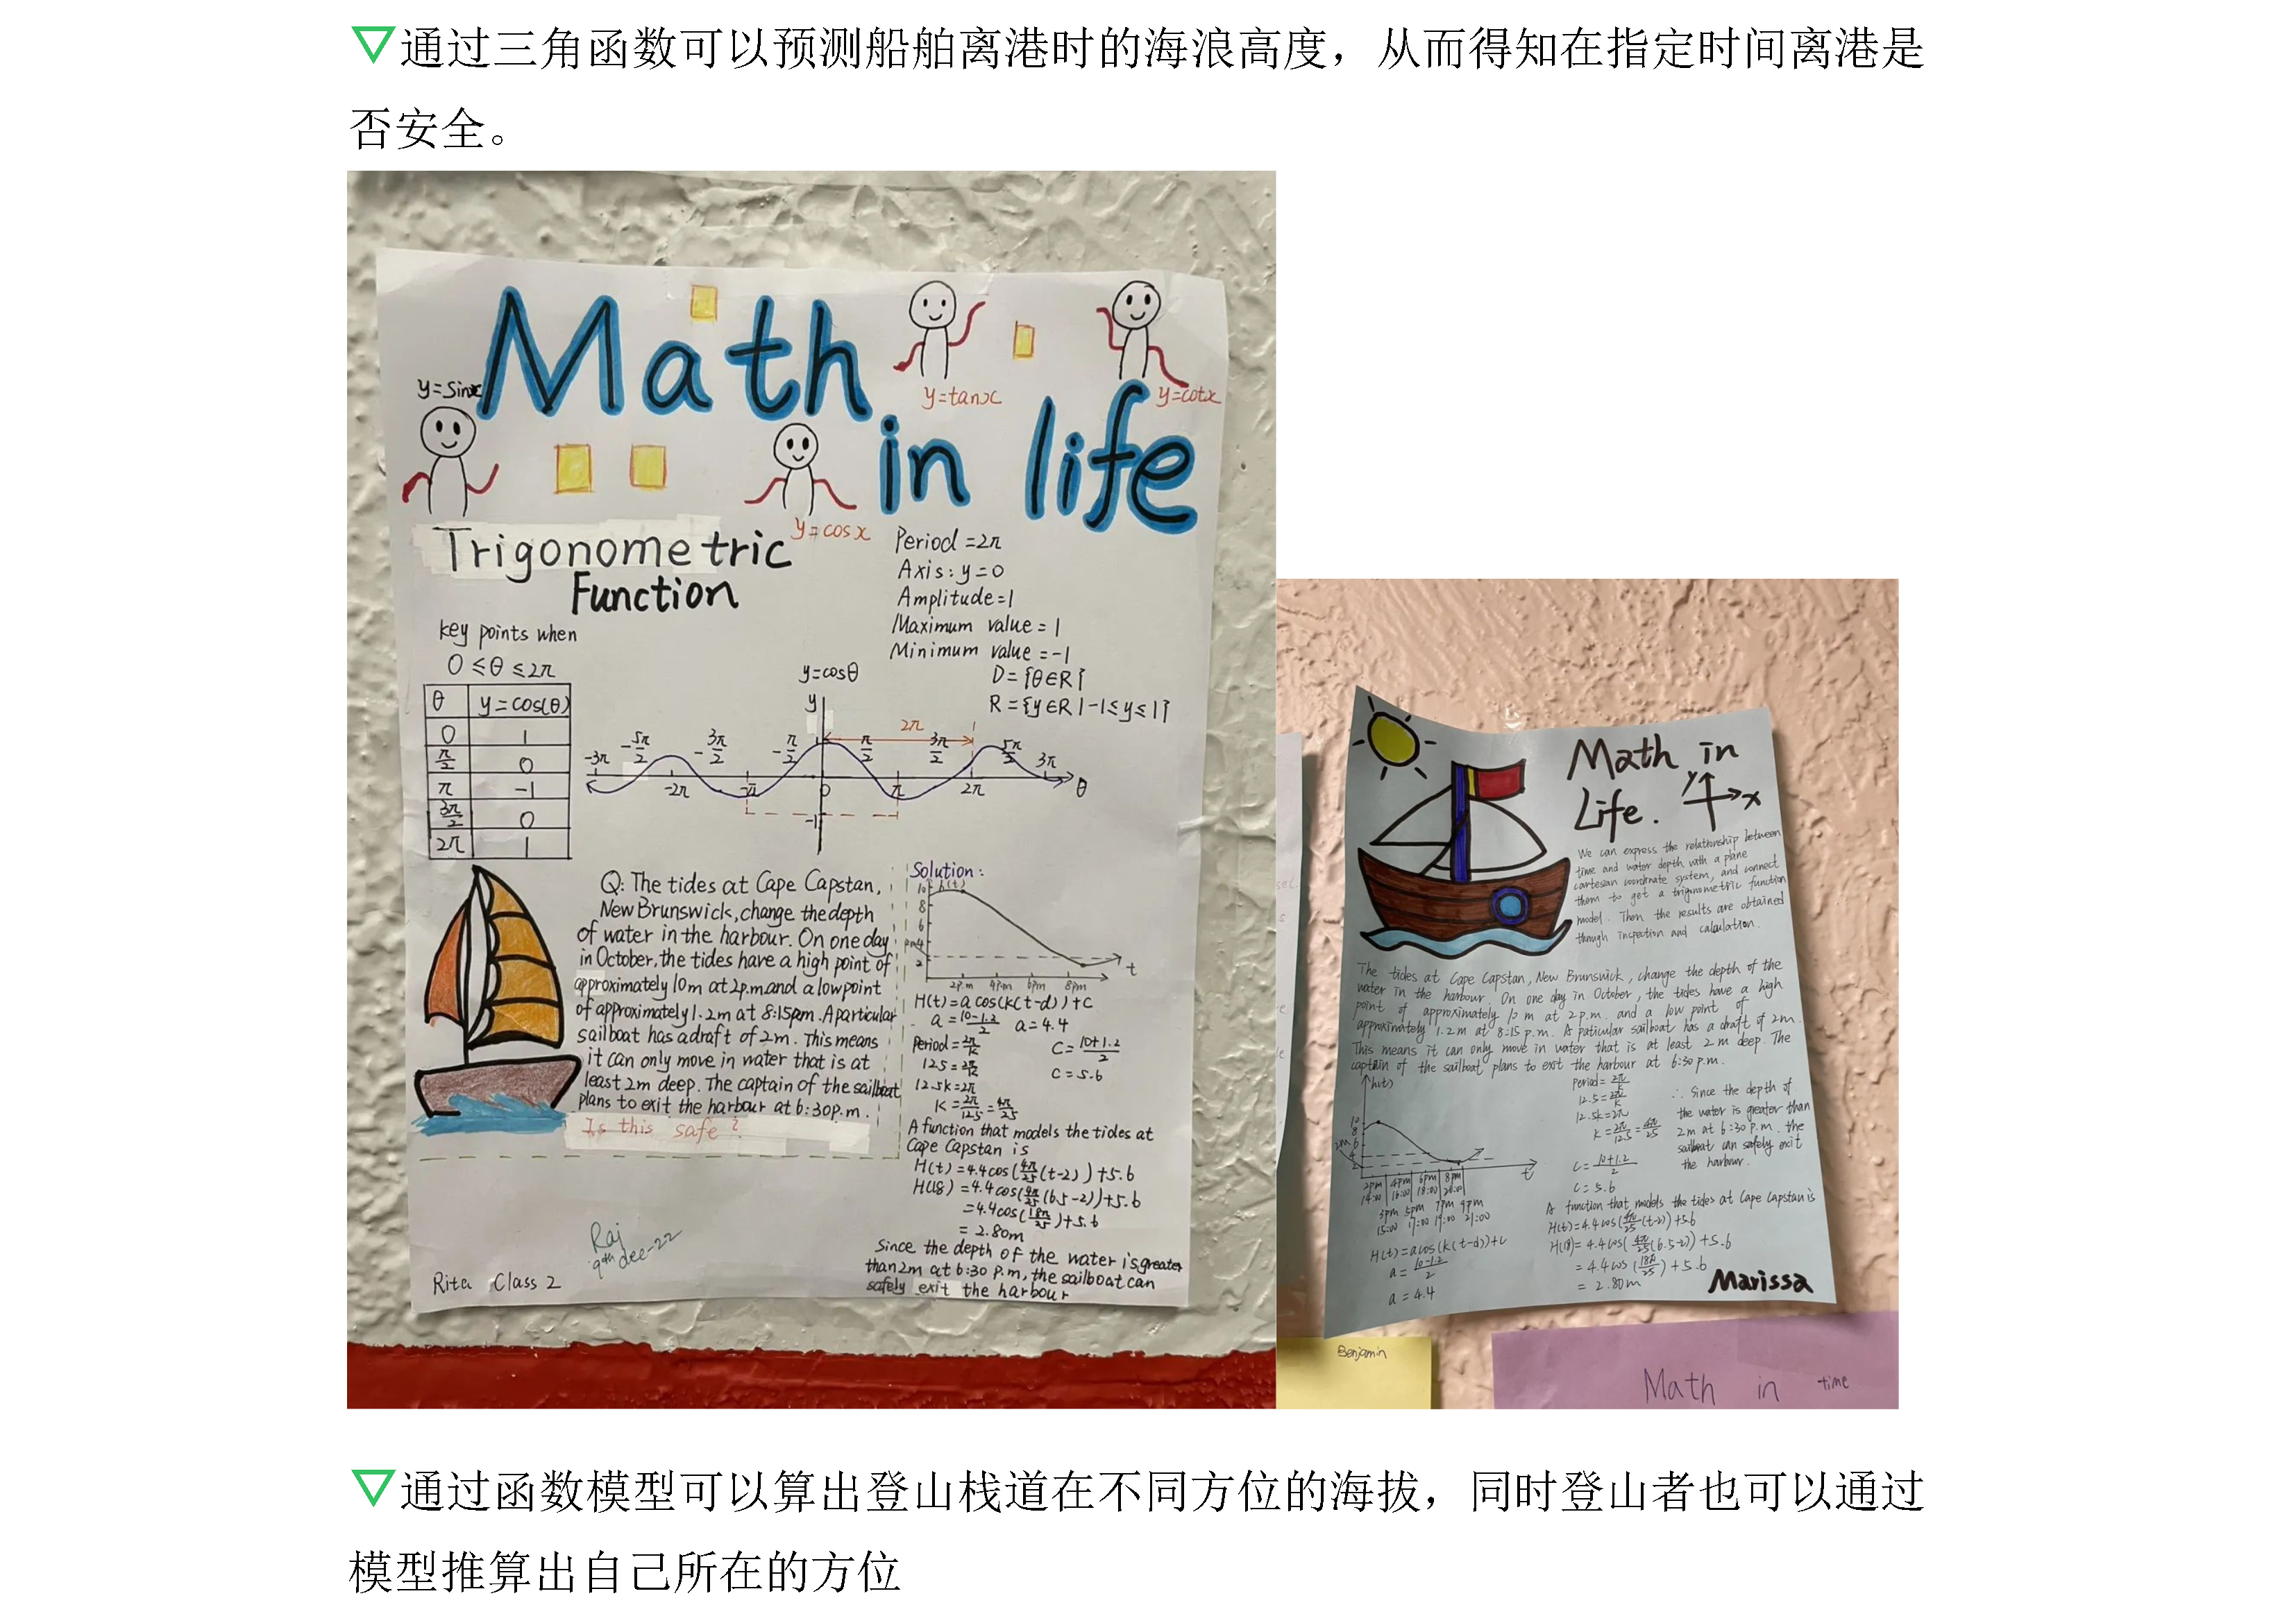 ▽通过三角函数可以预测船舶离港时的海浪高度，从而得知在指定时间离港是
否安全。
Math
in life
y=sinx
y=tanx
y=cotx
y=cosx
Trigonometric
Function
Period=2π
Axis: y=0
Amplitude=1
Maximum value=1
Minimum value=-1
D={θ∈R}
R={y∈R|-1≤y≤1}
key points when
0≤θ≤2π
θ y=cos(θ)
0 1
π/2 0
π -1
3π/2 0
2π 1
y=cosθ
y
2π
-3π -5π/2 -3π/2 -π/2 π/2 3π/2 5π/2 3π
-2π -π 0 π 2π θ
-1
Q: The tides at Cape Capstan,
New Brunswick, change the depth
of water in the harbour. On one day
in October, the tides have a high point of
approximately 10m at 2p.m and a low point
of approximately 1.2m at 8:15pm. A particular
sailboat has a draft of 2m. This means
it can only move in water that is at
least 2m deep. The captain of the sailboat
plans to exit the harbour at 6:30p.m.
Is this safe?
Solution:
h(t)
10
8
6
4
2
t
2p.m 4p.m 6pm 8pm
H(t)=a cos(k(t-d))+c
a=10-1.2/2 a=4.4
Period=2π/k
12.5=2π/k
12.5k=2π
k=2π/12.5=4π/25
c=10+1.2/2
c=5.6
A function that models the tides at
Cape Capstan is
H(t)=4.4cos(4π/25(t-2))+5.6
H(18)=4.4cos(4π/25(6.5-2))+5.6
=4.4cos(18π/25)+5.6
=2.80m
Since the depth of the water is greater
than 2m at 6:30 P.m, the sailboat can
safely exit the harbour
Raj
9th dec-22
Rita Class 2
Math in
Life.
Y
x
We can express the relationship between
time and water depth with a plane
cartesian coordinate system, and connect
them to get a trigonometric function
model. Then the results are obtained
though inspection and calculation.
The tides at Cape Capstan, New Brunswick, change the depth of the
water in the harbour. On one day in October, the tides have a high
point of approximately 10 m at 2 p.m. and a low point of
approximately 1.2 m at 8:15 p.m. A paticular sailboat has a draft of 2m.
This means it can only move in water that is at least 2 m deep. The
captain of the sailboat plans to exit the harbour at 6:30 p.m.
h(t)
10
8
6
4
2
t
2pm 4pm 6pm 8pm
14:00 16:00 18:00 20:00
3pm 5pm 7pm 9pm
15:00 17:00 19:00 21:00
H(t)=a cos(k(t-d))+c
a=10-1.2/2
a=4.4
Period=2π/k
12.5=2π/k
12.5k=2π
k=2π/12.5=4π/25
c=10+1.2/2
c=5.6
∴ Since the depth of
the water is greater than
2m at 6:30 p.m. the
sailboat can safely exit
the harbour.
A function that models the tides at Cape Capstan is
H(t)=4.4cos(4π/25(t-2))+5.6
H(18)=4.4cos(4π/25(6.5-2))+5.6
=4.4cos(18π/25)+5.6
=2.80m
Marissa
Benjamin
Math in time
▽通过函数模型可以算出登山栈道在不同方位的海拔，同时登山者也可以通过
模型推算出自己所在的方位